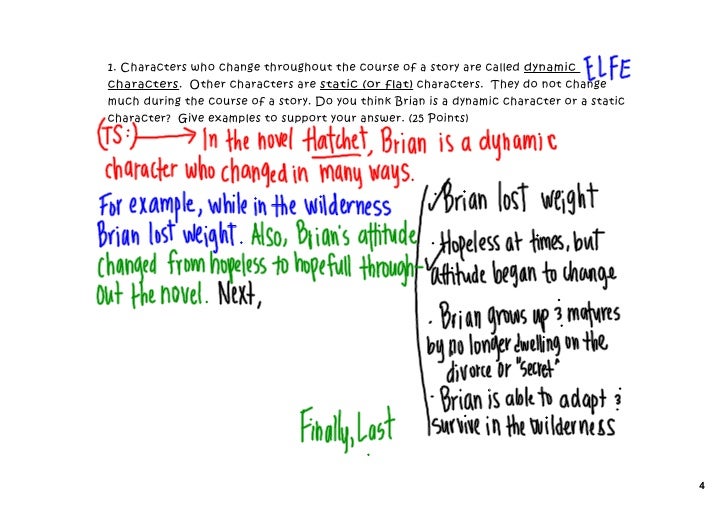 1. Characters who change throughout the course of a story are called dynamic
characters. Other characters are static (or flat) characters. They do not change
much during the course of a story. Do you think Brian is a dynamic character or a static
character? Give examples to support your answer. (25 Points)
ELFE
(TS:) → In the novel Hatchet, Brian is a dynamic
character who changed in many ways.
For example, while in the wilderness
Brian lost weight. Also, Brian's attitude
changed from hopeless to hopefull through-
out the novel. Next,
✓Brian lost weight
· Hopeless at times, but
✓attitude began to change
· Brian grows up & matures
by no longer dwelling on the
divorce or "secret"
· Brian is able to adapt &
survive in the wilderness
Finally, Last
4